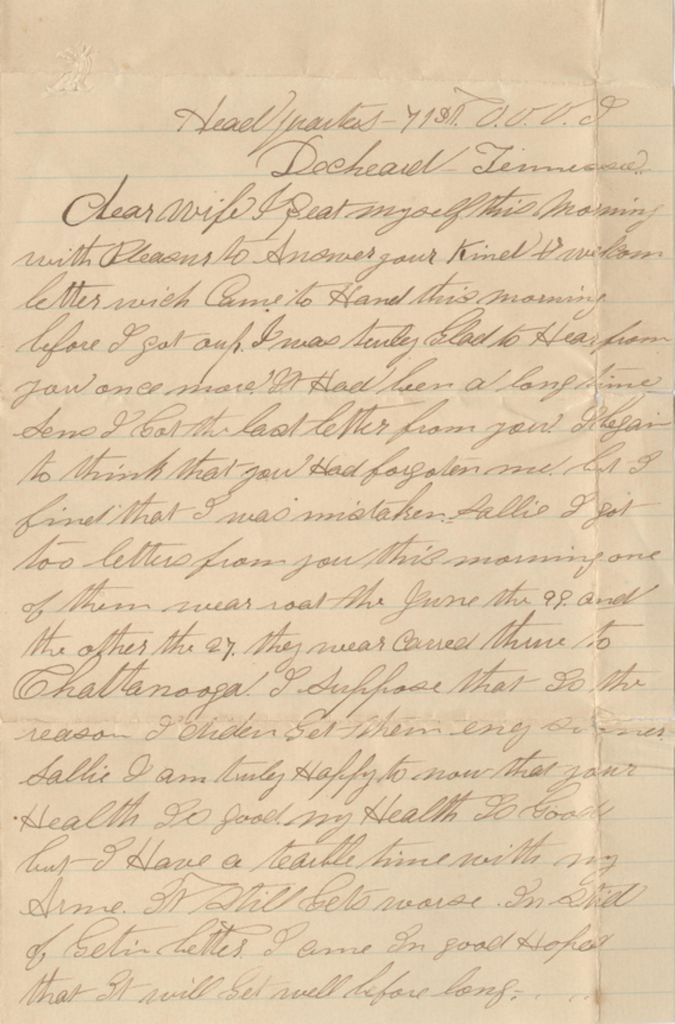 Head quarters - 71st. O. V. V. I
Decheard - Tennessee.
Dear Wife I Seat myself this Morning
with Pleasur to Answer your Kind & welcom
letter wich Came to Hand this morning
before I got oup. I was truly Glad to Hear from
you once more. It Had ben a long time
sens I Got the last letter from you. I began
to think that you Had forgoten me. but I
find that I was mistaken. Sallie I got
too letters from you this morning one
of them wear roat the June the 22. and
the other the 27. they wear carred threw to
Chattanooga. I suppose that Is the
reason I diden Get them eny sooner.
Sallie I am truly Happy to now that your
Health Is good. my Health Is Good
but I Have a tearble time with my
Arme. It Still Gets worse. In Stid
of Getin better. I ame In good Hopes
that It will Get well before long.